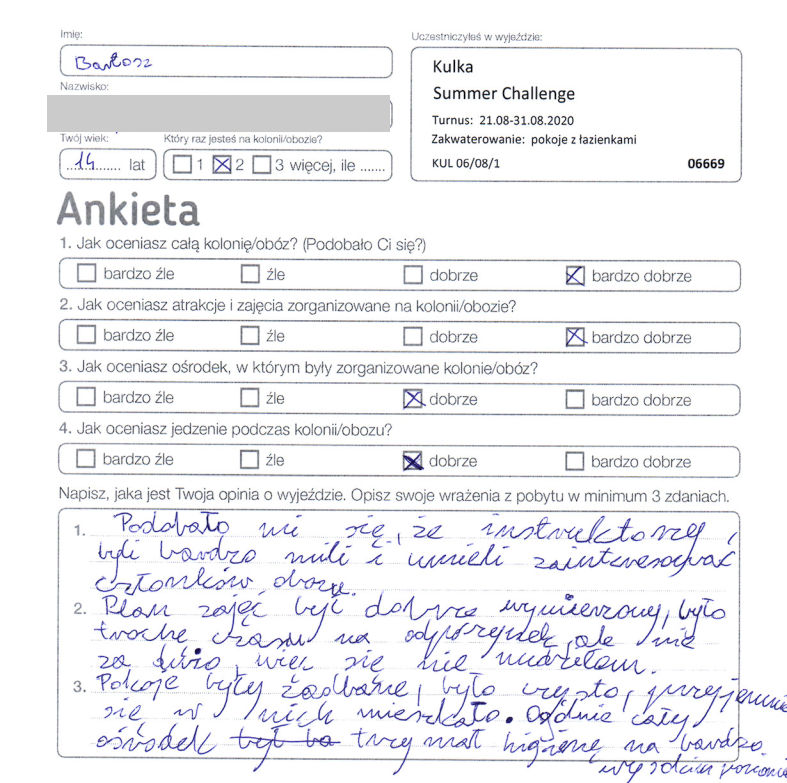 Imię:
Bartosz
Nazwisko:
Twój wiek:
Który raz jesteś na kolonii/obozie?
14 lat
1 2 3 więcej, ile .......
Uczestniczyłeś w wyjeździe:
Kulka
Summer Challenge
Turnus: 21.08-31.08.2020
Zakwaterowanie: pokoje z łazienkami
KUL 06/08/1 06669
Ankieta
1. Jak oceniasz całą kolonię/obóz? (Podobało Ci się?)
bardzo źle źle dobrze bardzo dobrze
2. Jak oceniasz atrakcje i zajęcia zorganizowane na kolonii/obozie?
bardzo źle źle dobrze bardzo dobrze
3. Jak oceniasz ośrodek, w którym były zorganizowane kolonie/obóz?
bardzo źle źle dobrze bardzo dobrze
4. Jak oceniasz jedzenie podczas kolonii/obozu?
bardzo źle źle dobrze bardzo dobrze
Napisz, jaka jest Twoja opinia o wyjeździe. Opisz swoje wrażenia z pobytu w minimum 3 zdaniach.
1. Podobało mi się, że instruktorzy
byli bardzo mili i umieli zainteresować
członków obozu.
2. Plan zajęć był dobrze wymierzony, było
trochę czasu na odpoczynek, ale nie
za dużo, więc się nie nudziłem.
3. Pokoje były zadbane, było czysto, przyjemnie
się w nich mieszkało. Ogólnie cały
ośrodek był ba trzymał higienę na bardzo
wysokim poziomie